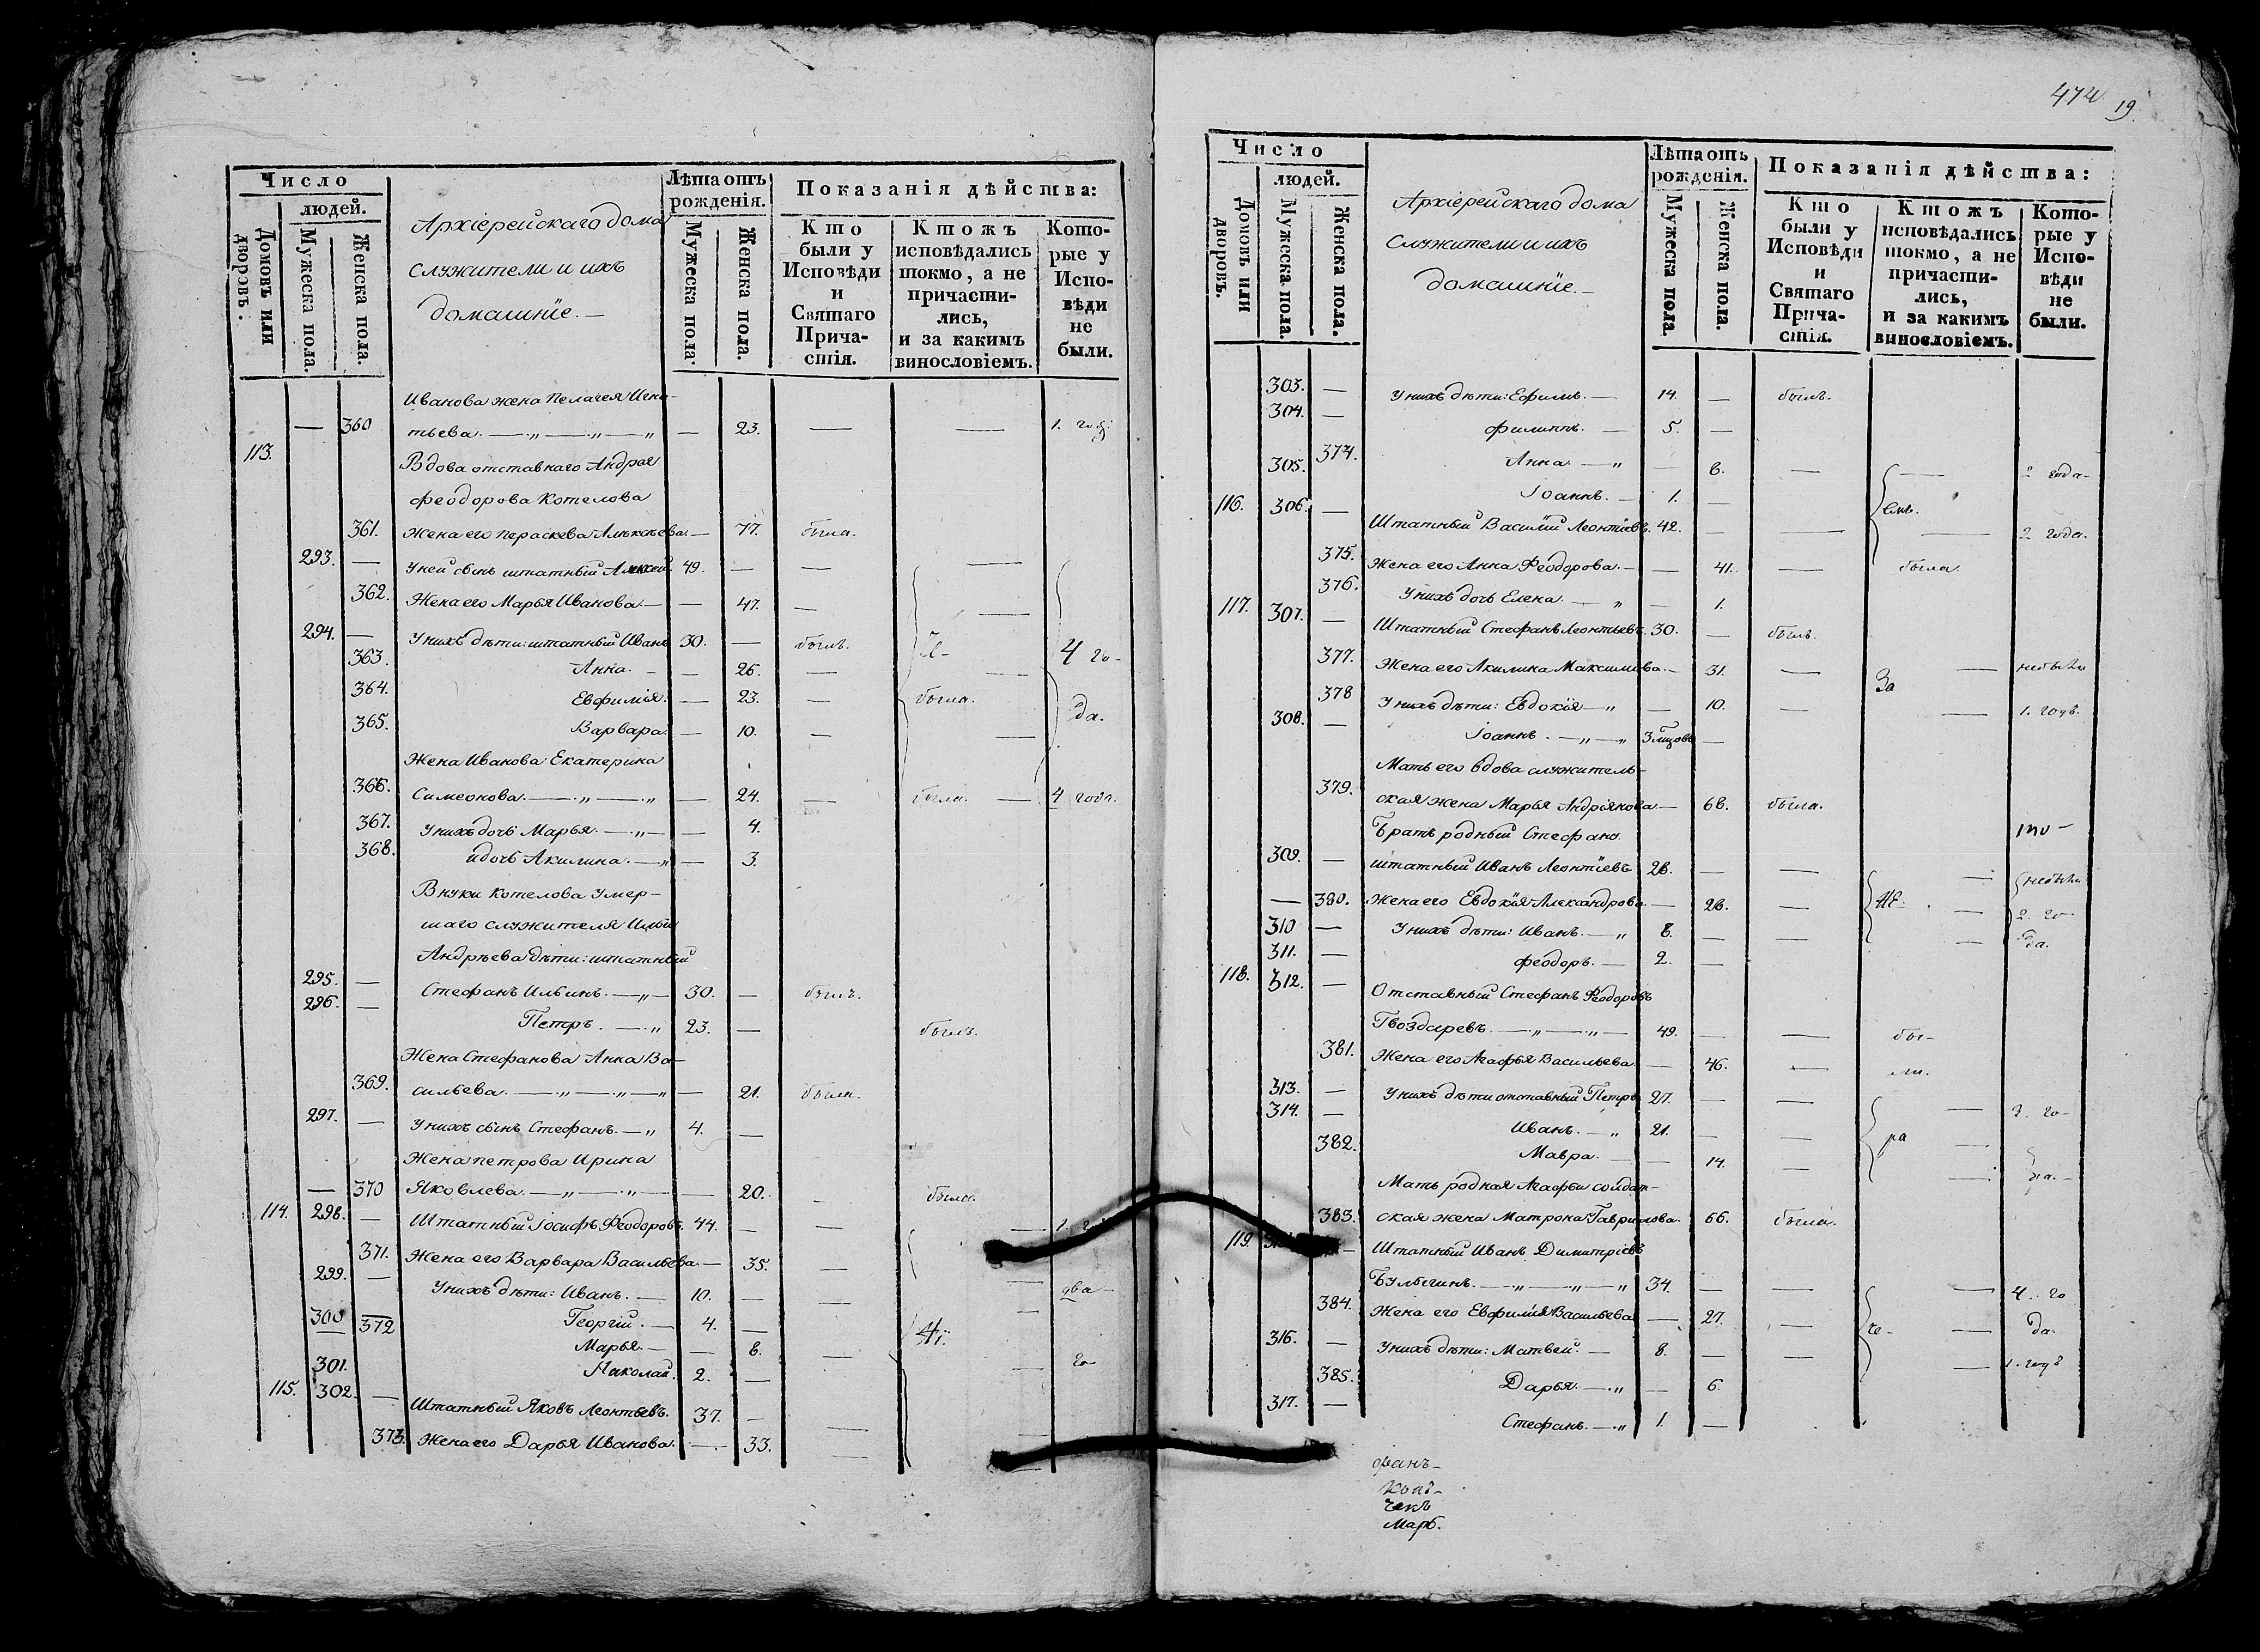 Число
людей.
Домовъ или дворовъ.
Мужеска пола.
Женска пола.
Архіерейскаго дома
служители и ихъ
домашніе. —
Лѣта отъ рожденія.
Мужеска пола.
Женска пола.
Показанія дѣйства:
Кто были у Исповѣди и Святаго Причастія.
Ктожъ исповѣдались токмо, а не причастились, и за какимъ винословіемъ.
Которые у Исповѣди не были.
Иванова жена Пелагея Игна-
— 360 тьева. — — 23. — — 1. годъ
113. Вдова отставнаго Андрея
Феодорова Котелова
361. Жена его Параскева Алексѣева — 77. была.
293. — У ней сынъ штатный Алексей 49. — —
362. Жена его Марья Иванова. — — 47. —
294. — У нихъ дѣти: штатный Иванъ 30. — былъ. 4 го-
363. Анна. — — 26. —
364. Евфимія. — 23. — была.
365. Варвара. — 10. — да.
Жена Иванова Екатерина
366. Симеонова. — — 24. — была. — 4 года.
367. У нихъ дочь Марья. — — 4.
368. и дочь Акилина. — — 3.
Внуки Котелова умер-
шаго служителя Ильи
Андрѣева дѣти: штатный
295. — Стефанъ Ильинъ. — 30. — былъ.
296. — Петръ. — 23. — былъ.
Жена Стефанова Анна Ва-
369. сильева. — — 21. была.
297. — У нихъ сынъ Стефанъ. — 4. —
Жена Петрова Ирина
— 370 Яковлева. — — 20. — была.
114. 298. — Штатный Іосифъ Феодоровъ. 44. — —
371. Жена его Варвара Васильева. — 35. —
299. — У нихъ дѣти: Иванъ. — 10. — — два
300 Георгій. — 4. —
372 Марья. — — 6. —
301. Николай. 2. —
115. 302. — Штатный Яковъ Леонтьевъ. 37. — —
373. Жена его Дарья Иванова. — 33. —
474 19.
Число
людей.
Домовъ или дворовъ.
Мужеска пола.
Женска пола.
Архіерейскаго дома
служители и ихъ
домашніе. —
Лѣта отъ рожденія.
Мужеска пола.
Женска пола.
Показанія дѣйства:
Кто были у Исповѣди и Святаго Причастія.
Ктожъ исповѣдались токмо, а не причастились, и за какимъ винословіемъ.
Которые у Исповѣди не были.
303. — У нихъ дѣти: Ефимъ. — 14. — былъ.
304. — Филиппъ. — 5. —
374. Анна. — — 8. — — 2 года
305. Іоаннъ. — 1. —
116. 306. — Штатный Василій Леонтіевъ. 42. — — — 2 года.
375. Жена его Анна Феодорова. — — 41. — была.
376. У нихъ дочь Елена. — — 1.
117. 307. — Штатный Стефанъ Леонтьевъ. 30. — былъ.
377. Жена его Акилина Максимова. — 31. — —
За
378 У нихъ дѣти: Евдокія — — 10. — — 1. годъ.
308. — Іоаннъ. — —
Мать его вдова служитель-
379. ская жена Марья Андріянова — 68. была.
Братъ родный Стефана
309. — штатный Иванъ Леонтіевъ 28. — —
— 380. Жена его Евдокія Александрова. — 28. — 2. го-
310 — У нихъ дѣти: Иванъ. — 8. — — да.
311. — Феодоръ. — 2. —
118. 312. — Отставный Стефанъ Феодоровъ
Гвоздаревъ. — 49. — — бы-
381. Жена его Агафья Васильева. — 46. — ли.
313. — У нихъ дѣти отставный Петръ 27. — — — го-
314. — Иванъ. — 21. — — ра
382. Мавра. — — 14. — — да. —
Мать родная Агафьи солдат-
383. ская жена Матрона Гаврилова. 66. была.
119. Штатный Иванъ Димитріевъ
Булыгинъ. — 34. — — 4. го
384. Жена его Евфимія Васильева — 27. — че- — да.
316. — У нихъ дѣти: Матвей. — 8. — — — 1. годъ
385. Дарья. — — 6.
317. — Стефанъ. — 1. —
фанъ-